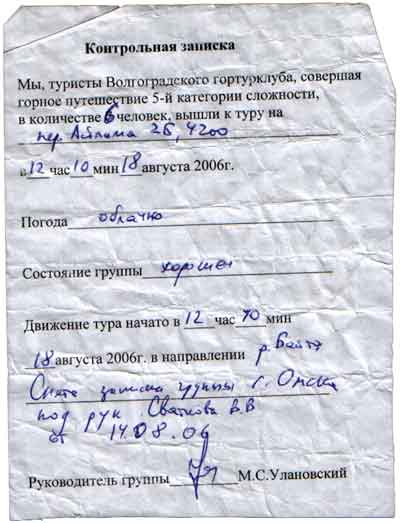 Контрольная записка
Мы, туристы Волгоградского гортурклуба, совершая
горное путешествие 5-й категории сложности,
в количестве 6 человек, вышли к туру на
пер. Айлама 2Б, 4200
в 12 час 10 мин 18 августа 2006г.
Погода облачно
Состояние группы хорошее
Движение тура начато в 12 час 40 мин
18 августа 2006г. в направлении р.
Снята записка группы г. Омска
под рук В.В
от 14.08.06
Руководитель группы М.С.Улановский